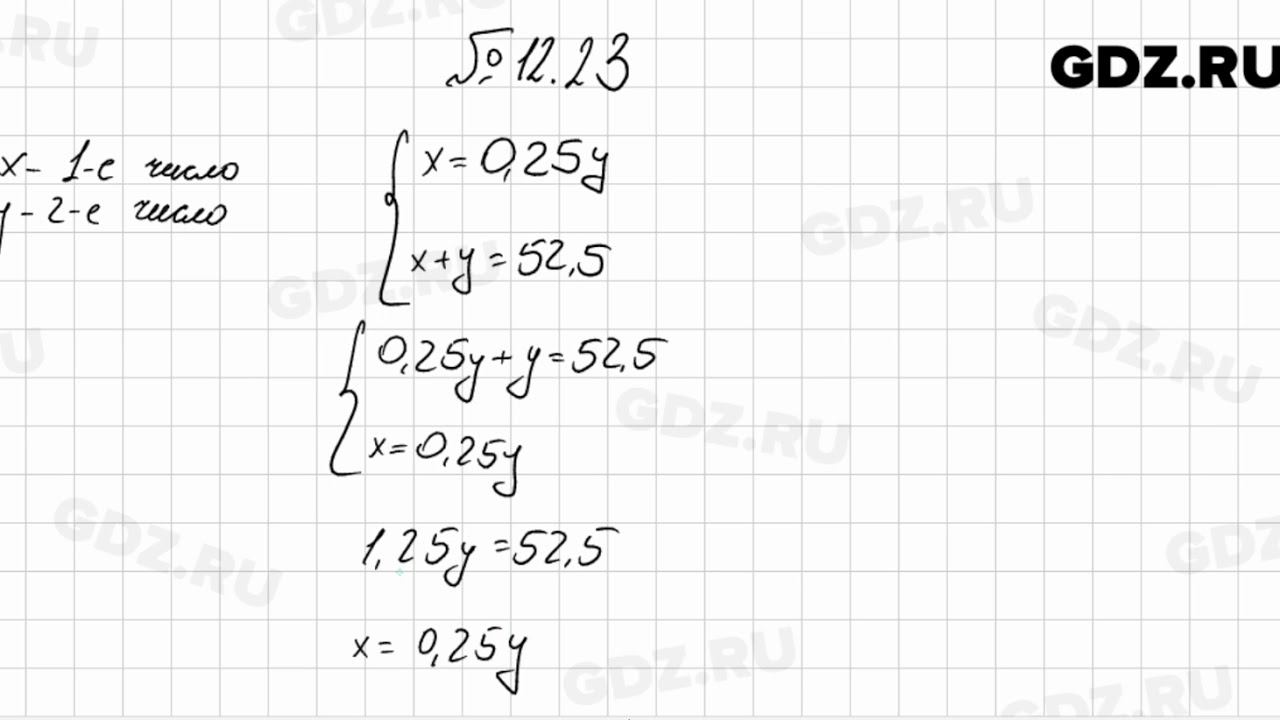 № 12.23
GDZ.RU
x - 1-е число
y - 2-е число
x = 0,25y
x + y = 52,5
0,25y + y = 52,5
x = 0,25y
1,25y = 52,5
x = 0,25y